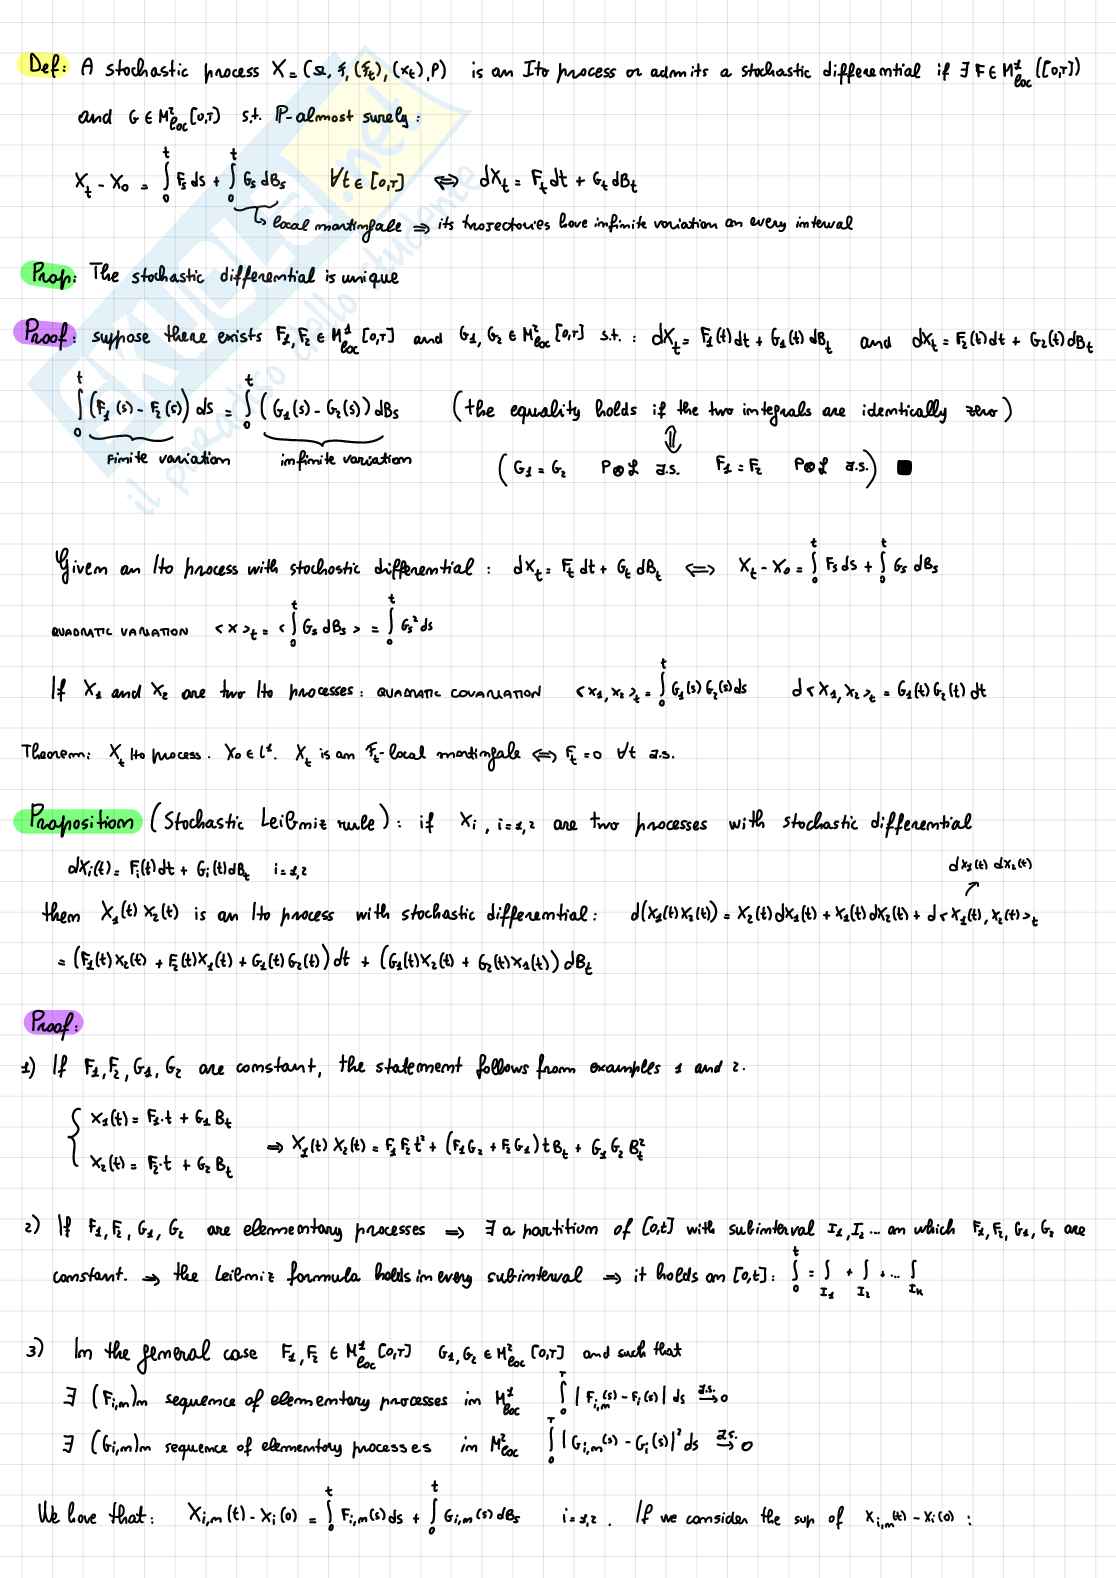 Def: A stochastic process X = (Ω, ℱ, (ℱₜ), (Xₜ), P) is an Ito process or admits a stochastic differential if ∃ F ∈ M¹_loc([0,T])
and G ∈ M²_loc[0,T] s.t. P-almost surely:
Xₜ - X₀ = ∫₀ᵗ Fs ds + ∫₀ᵗ Gs dBs ∀t ∈ [0,T] ⇔ dXₜ = Fₜ dt + Gₜ dBₜ
↳ local martingale ⇒ its trajectories have infinite variation on every interval
Prop: The stochastic differential is unique
Proof: suppose there exists F₁, F₂ ∈ M¹_loc [0,T] and G₁, G₂ ∈ M²_loc [0,T] s.t.: dXₜ = F₁(t) dt + G₁(t) dBₜ and dXₜ = F₂(t) dt + G₂(t) dBₜ
∫₀ᵗ (F₁(s) - F₂(s)) ds = ∫₀ᵗ (G₁(s) - G₂(s)) dBs (the equality holds if the two integrals are identically zero)
⇕
finite variation infinite variation (G₁ = G₂ P⊗ℒ a.s. F₁ = F₂ P⊗ℒ a.s.) ■
Given an Ito process with stochastic differential: dXₜ = Fₜ dt + Gₜ dBₜ ⇔ Xₜ - X₀ = ∫₀ᵗ Fs ds + ∫₀ᵗ Gs dBs
QUADRATIC VARIATION <X>ₜ = <∫₀ᵗ Gs dBs> = ∫₀ᵗ Gs² ds
If X₁ and X₂ are two Ito processes: QUADRATIC COVARIATION <X₁, X₂>ₜ = ∫₀ᵗ G₁(s) G₂(s) ds d<X₁, X₂>ₜ = G₁(t) G₂(t) dt
Theorem: Xₜ Ito process. X₀ ∈ L¹. Xₜ is an ℱₜ-local martingale ⇔ Fₜ = 0 ∀t a.s.
Proposition (Stochastic Leibniz rule): if Xᵢ, i=1,2 are two processes with stochastic differential
dXᵢ(t) = Fᵢ(t) dt + Gᵢ(t) dBₜ i=1,2
dX₁(t) dX₂(t)
then X₁(t) X₂(t) is an Ito process with stochastic differential: d(X₁(t)X₂(t)) = X₂(t) dX₁(t) + X₁(t) dX₂(t) + d<X₁(t), X₂(t)>ₜ
= (F₁(t)X₂(t) + F₂(t)X₁(t) + G₁(t)G₂(t)) dt + (G₁(t)X₂(t) + G₂(t)X₁(t)) dBₜ
Proof:
1) If F₁, F₂, G₁, G₂ are constant, the statement follows from examples 1 and 2.
{ X₁(t) = F₁·t + G₁Bₜ
X₂(t) = F₂·t + G₂Bₜ ⇒ X₁(t) X₂(t) = F₁F₂t² + (F₁G₂ + F₂G₁) t Bₜ + G₁G₂Bₜ²
2) If F₁, F₂, G₁, G₂ are elementary processes ⇒ ∃ a partition of [0,t] with subinterval I₁, I₂ ... on which F₁, F₂, G₁, G₂ are
constant. ⇒ the Leibniz formula holds in every subinterval ⇒ it holds on [0,t]: ∫₀ᵗ = ∫_I₁ + ∫_I₂ + ... ∫_Iₖ
3) In the general case F₁, F₂ ∈ M¹_loc [0,T] G₁, G₂ ∈ M²_loc [0,T] and such that
∃ (Fi,n)n sequence of elementary processes in M¹_loc ∫₀ᵀ |Fi,n(s) - Fi(s)| ds →a.s. 0
∃ (Gi,n)n sequence of elementary processes in M²_loc ∫₀ᵀ |Gi,n(s) - Gi(s)|² ds →a.s. 0
We have that: Xi,n(t) - Xi(0) = ∫₀ᵗ Fi,n(s) ds + ∫₀ᵗ Gi,n(s) dBs i=1,2. If we consider the sup of Xi,n(t) - Xi(0):
SKUOLA.net
il paradiso dello studente